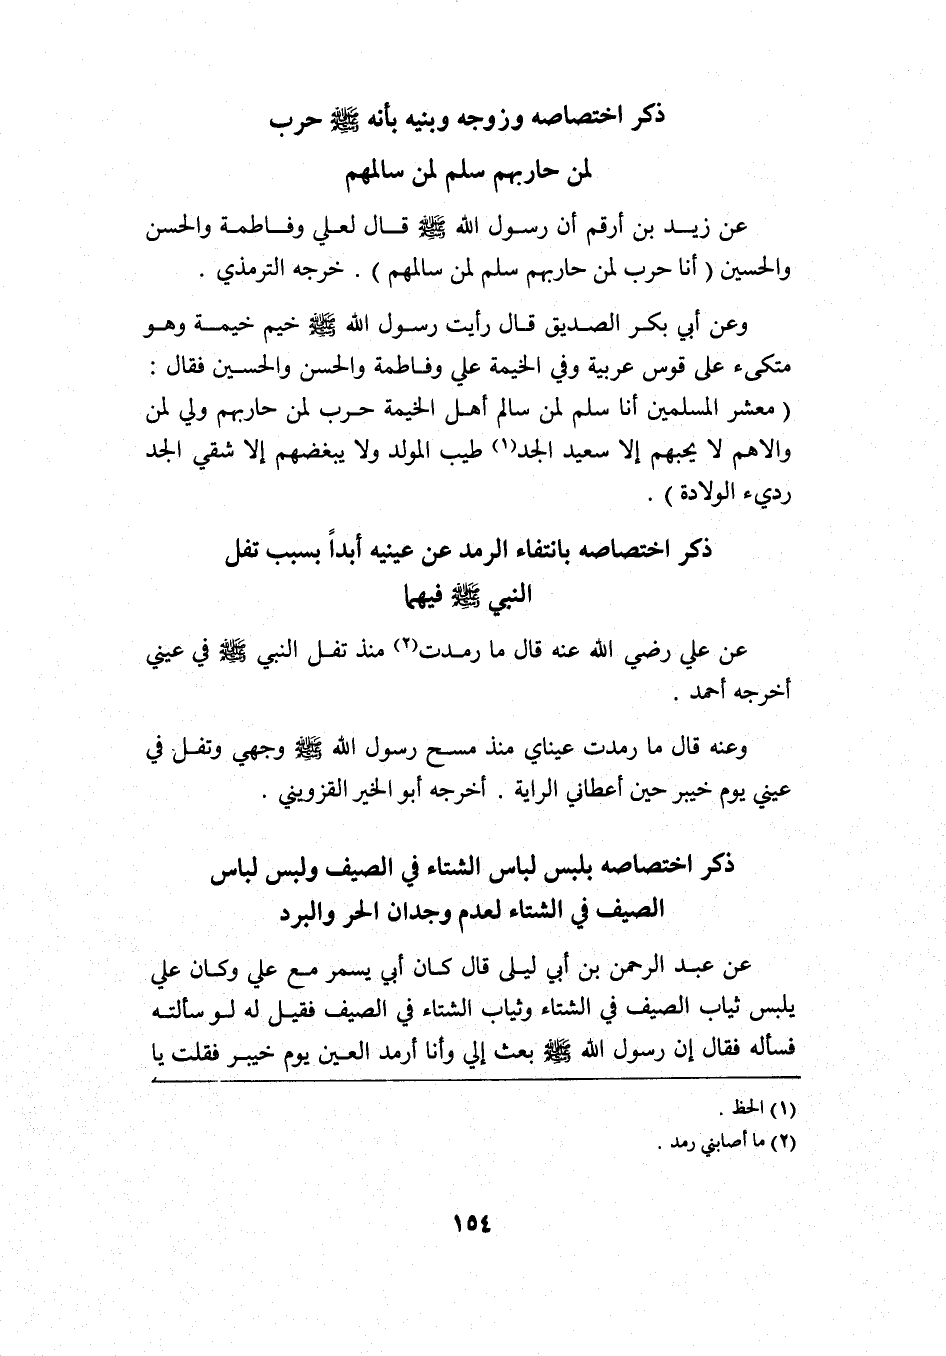 ذكر اختصاصه وزوجه وبنيه بأنه ﷺ حرب
لمن حاربهم سلم لمن سالمهم
عن زيد بن أرقم أن رسول الله ﷺ قال لعلي وفاطمة والحسن
والحسين ( أنا حرب لمن حاربهم سلم لمن سالمهم ) . خرجه الترمذي .
وعن أبي بكر الصديق قال رأيت رسول الله ﷺ خيم خيمة وهو
متكىء على قوس عربية وفي الخيمة علي وفاطمة والحسن والحسين فقال :
( معشر المسلمين أنا سلم لمن سالم أهل الخيمة حرب لمن حاربهم ولي لمن
والاهم لا يحبهم إلا سعيد الجد(١) طيب المولد ولا يبغضهم إلا شقي الجد
رديء الولادة ) .
ذكر اختصاصه بانتفاء الرمد عن عينيه أبداً بسبب تفل
النبي ﷺ فيهما
عن علي رضي الله عنه قال ما رمدت(٢) منذ تفل النبي ﷺ في عيني
أخرجه أحمد .
وعنه قال ما رمدت عيناي منذ مسح رسول الله ﷺ وجهي وتفل في
عيني يوم خيبر حين أعطاني الراية . أخرجه أبو الخير القزويني .
ذكر اختصاصه بلبس لباس الشتاء في الصيف ولبس لباس
الصيف في الشتاء لعدم وجدان الحر والبرد
عن عبد الرحمن بن أبي ليلى قال كان أبي يسمر مع علي وكان علي
يلبس ثياب الصيف في الشتاء وثياب الشتاء في الصيف فقيل له لو سألته
فسأله فقال إن رسول الله ﷺ بعث إلي وأنا أرمد العين يوم خيبر فقلت يا
(١) الحظ .
(٢) ما أصابني رمد .
١٥٤